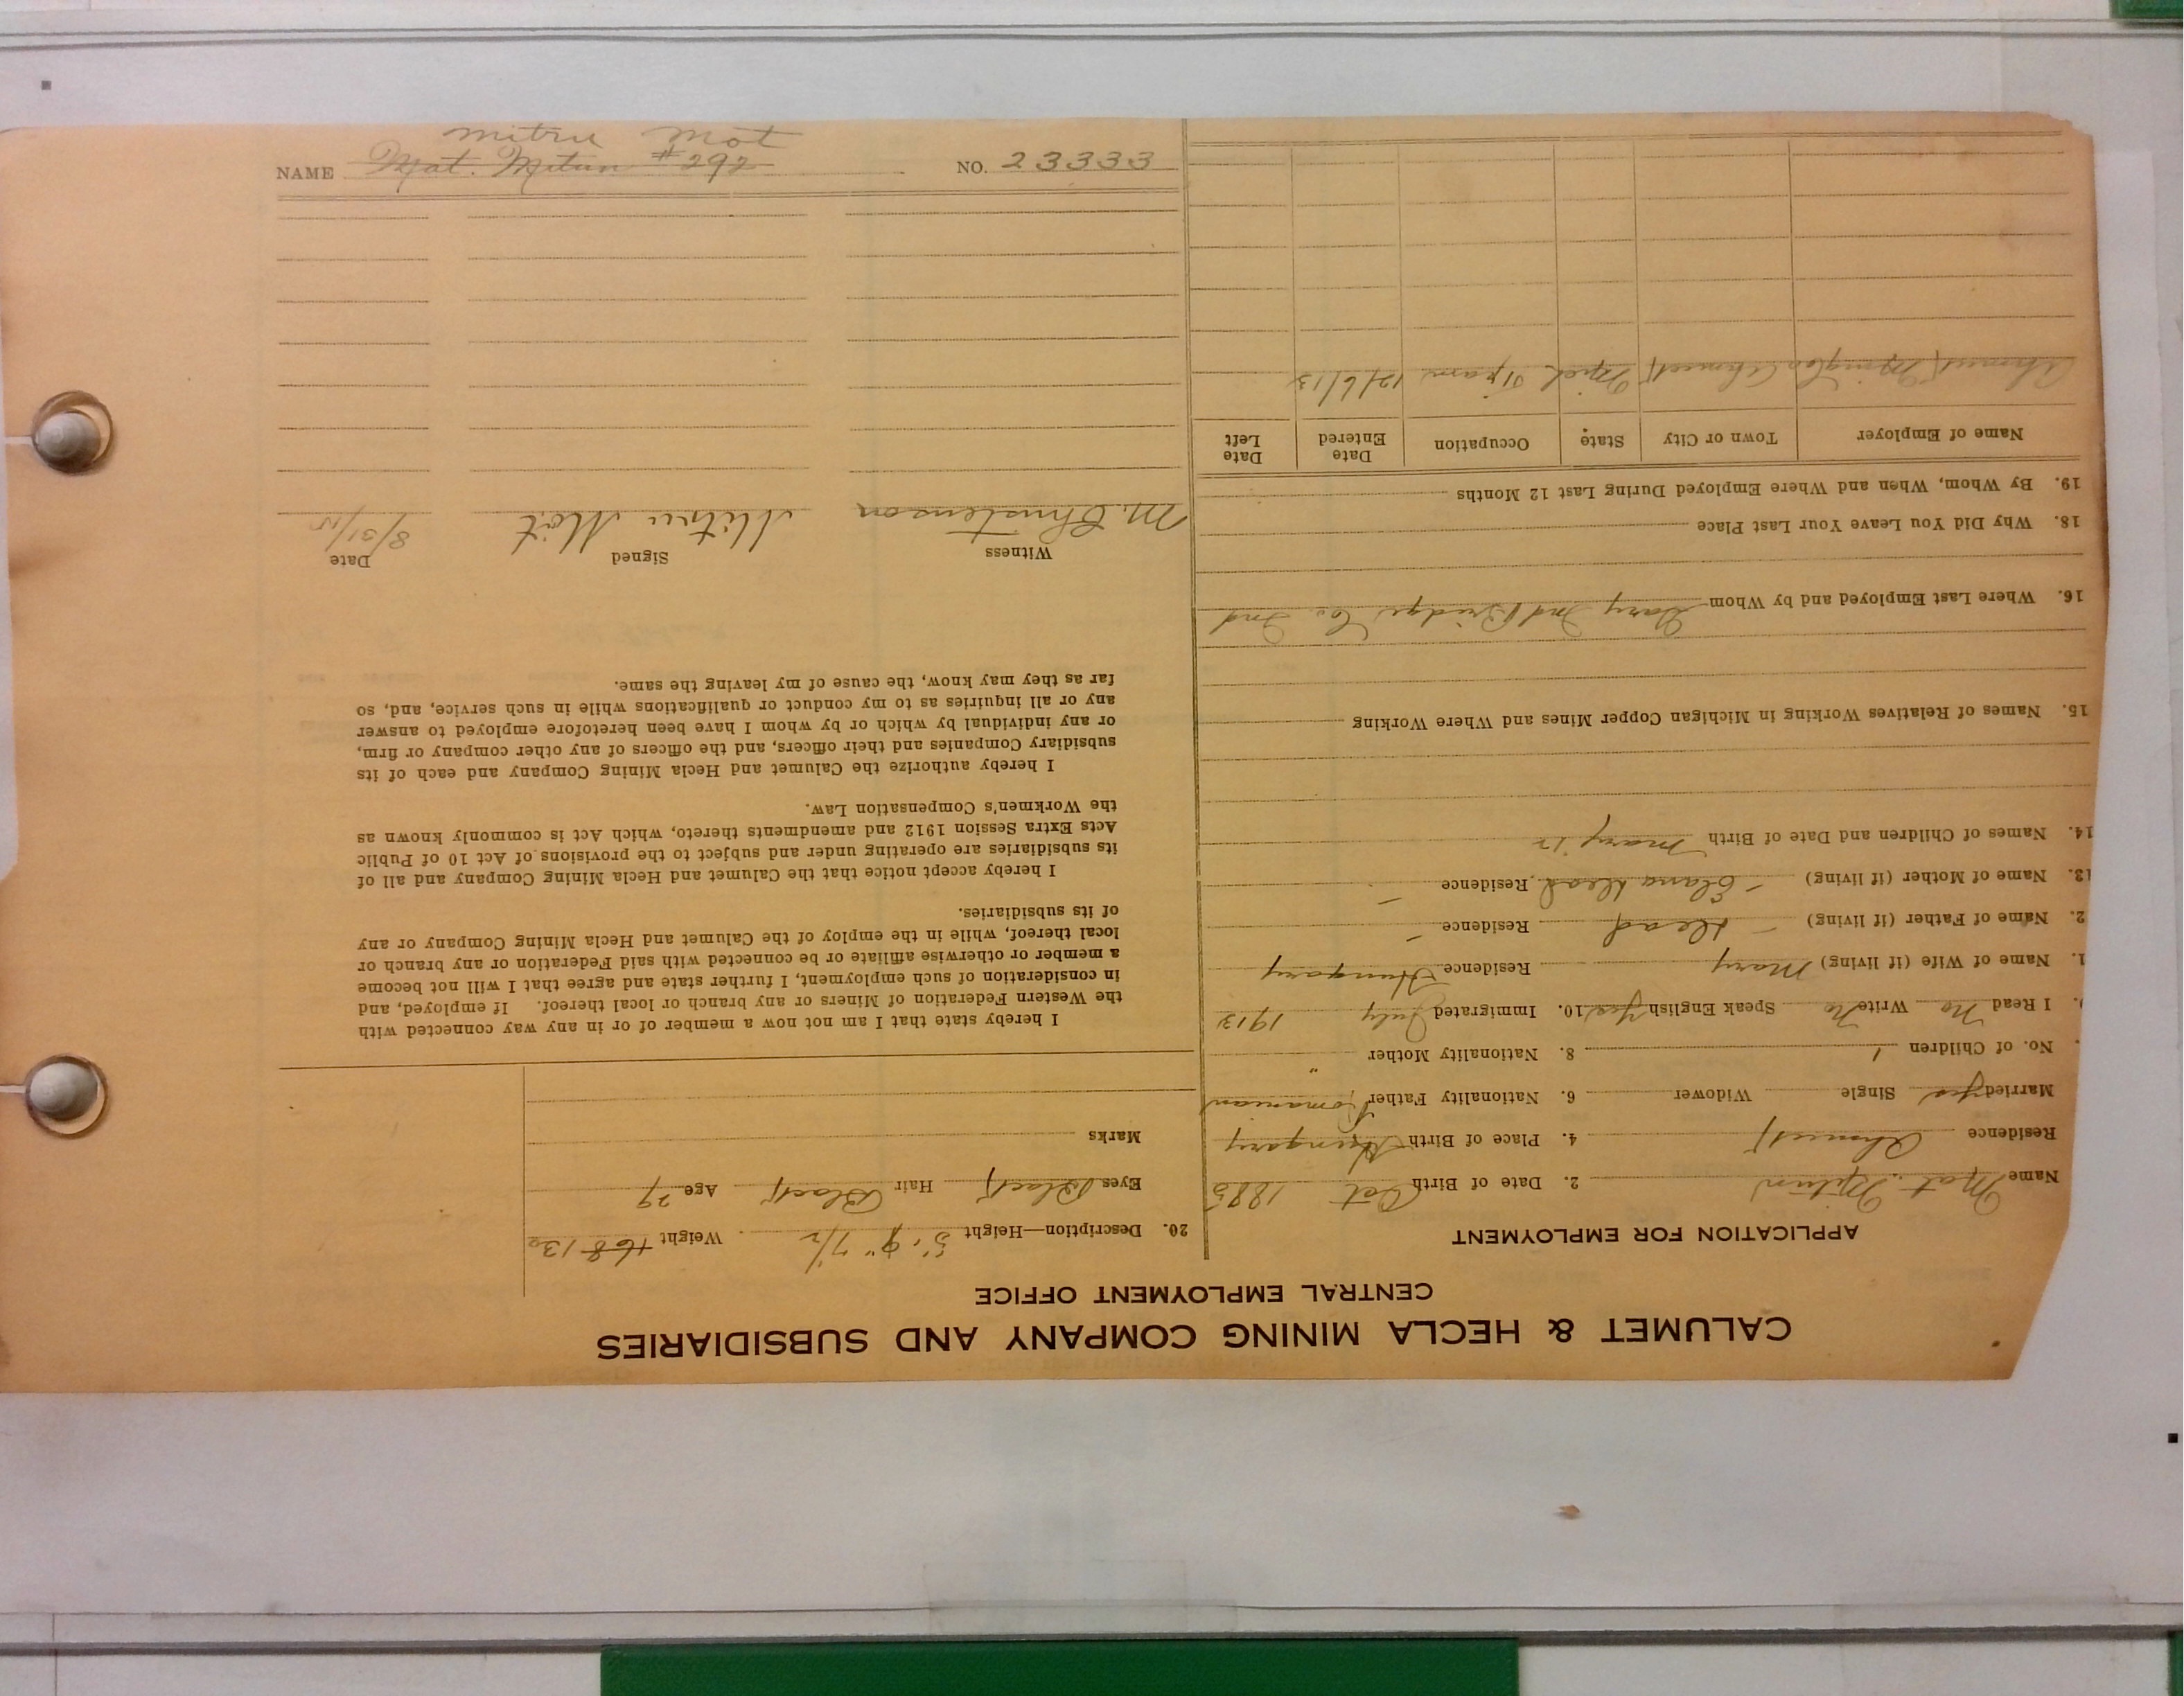 CALUMET & HECLA MINING COMPANY AND SUBSIDIARIES
CENTRAL EMPLOYMENT OFFICE
APPLICATION FOR EMPLOYMENT
Name Mat. Mitun 2. Date of Birth Oct 1885
Residence Ahmeek 4. Place of Birth Hungary
Married yes Single Widower 6. Nationality Father Romanian
No. of Children 1 8. Nationality Mother "
I Read No Write No Speak English Yes 10. Immigrated July 1913
1. Name of Wife (if living) Mary Residence Hungary
2. Name of Father (if living) – Dead Residence –
13. Name of Mother (if living) – Dead Residence –
14. Names of Children and Date of Birth Mary 12
15. Names of Relatives Working in Michigan Copper Mines and Where Working
16. Where Last Employed and by Whom Gary Ind Bridge Co. Ind
18. Why Did You Leave Your Last Place
19. By Whom, When and Where Employed During Last 12 Months
Name of Employer Town or City State Occupation Date Entered Date Left
Ahmeek Ming Co Ahmeek Mich Tram 12/6/13
20. Description—Height 5' 9" 7/2 Weight 168 130
Eyes Black Hair Black Age 29
Marks
I hereby state that I am not now a member of or in any way connected with
the Western Federation of Miners or any branch or local thereof. If employed, and
in consideration of such employment, I further state and agree that I will not become
a member or otherwise affiliate or be connected with said Federation or any branch or
local thereof, while in the employ of the Calumet and Hecla Mining Company or any
of its subsidiaries.
I hereby accept notice that the Calumet and Hecla Mining Company and all of
its subsidiaries are operating under and subject to the provisions of Act 10 of Public
Acts Extra Session 1912 and amendments thereto, which Act is commonly known as
the Workmen's Compensation Law.
I hereby authorize the Calumet and Hecla Mining Company and each of its
subsidiary Companies and their officers, and the officers of any other company or firm,
or any individual by which or by whom I have been heretofore employed to answer
any or all inquiries as to my conduct or qualifications while in such service, and, so
far as they may know, the cause of my leaving the same.
Witness Signed Date
M. Christenson Mitru Mot 8/31/15
Mitru Mot
NAME Mat. Mitun #292 NO. 23333